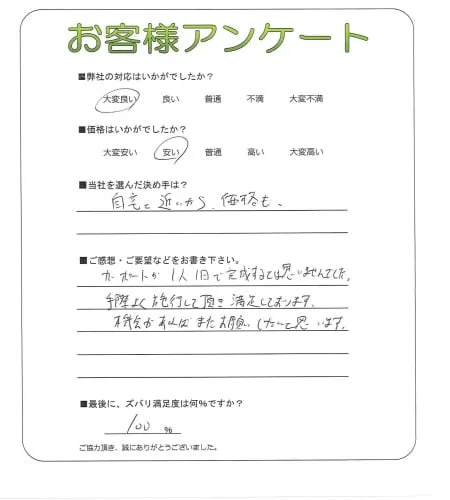 お客様アンケート
■弊社の対応はいかがでしたか？
大変良い 良い 普通 不満 大変不満
■価格はいかがでしたか？
大変安い 安い 普通 高い 大変高い
■当社を選んだ決め手は？
自宅と近いから、価格も、
■ご感想・ご要望などをお書き下さい。
カーポートが1人1日で完成するとは思いませんでした。
手際よく施行して頂き満足しております。
機会があればまたお願いしたいと思います。
■最後に、ズバリ満足度は何%ですか？
100 %
ご協力頂き、誠にありがとうございました。